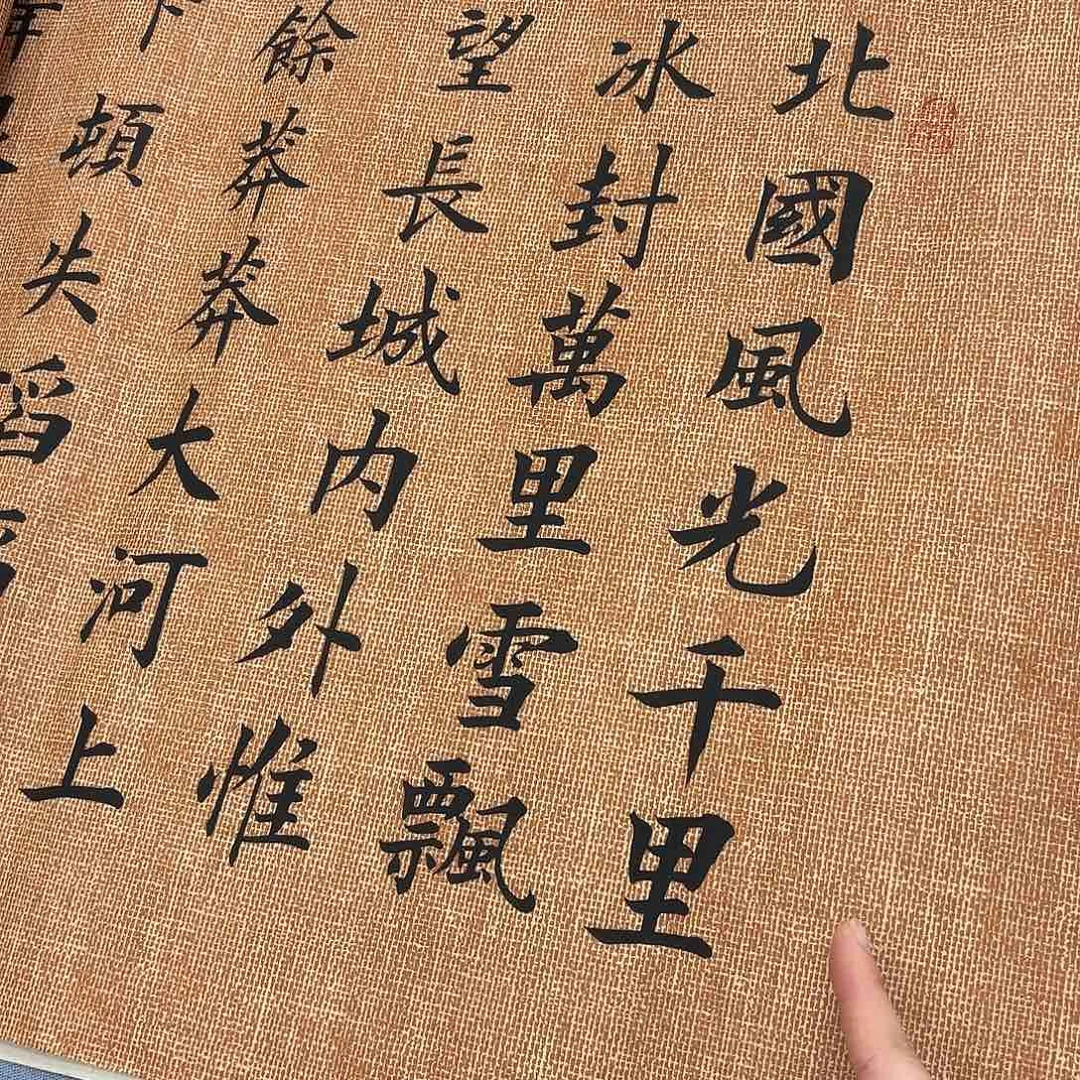 北國風光千里
冰封萬里雪飄
望長城内外惟
餘莽莽大河上
下頓失滔